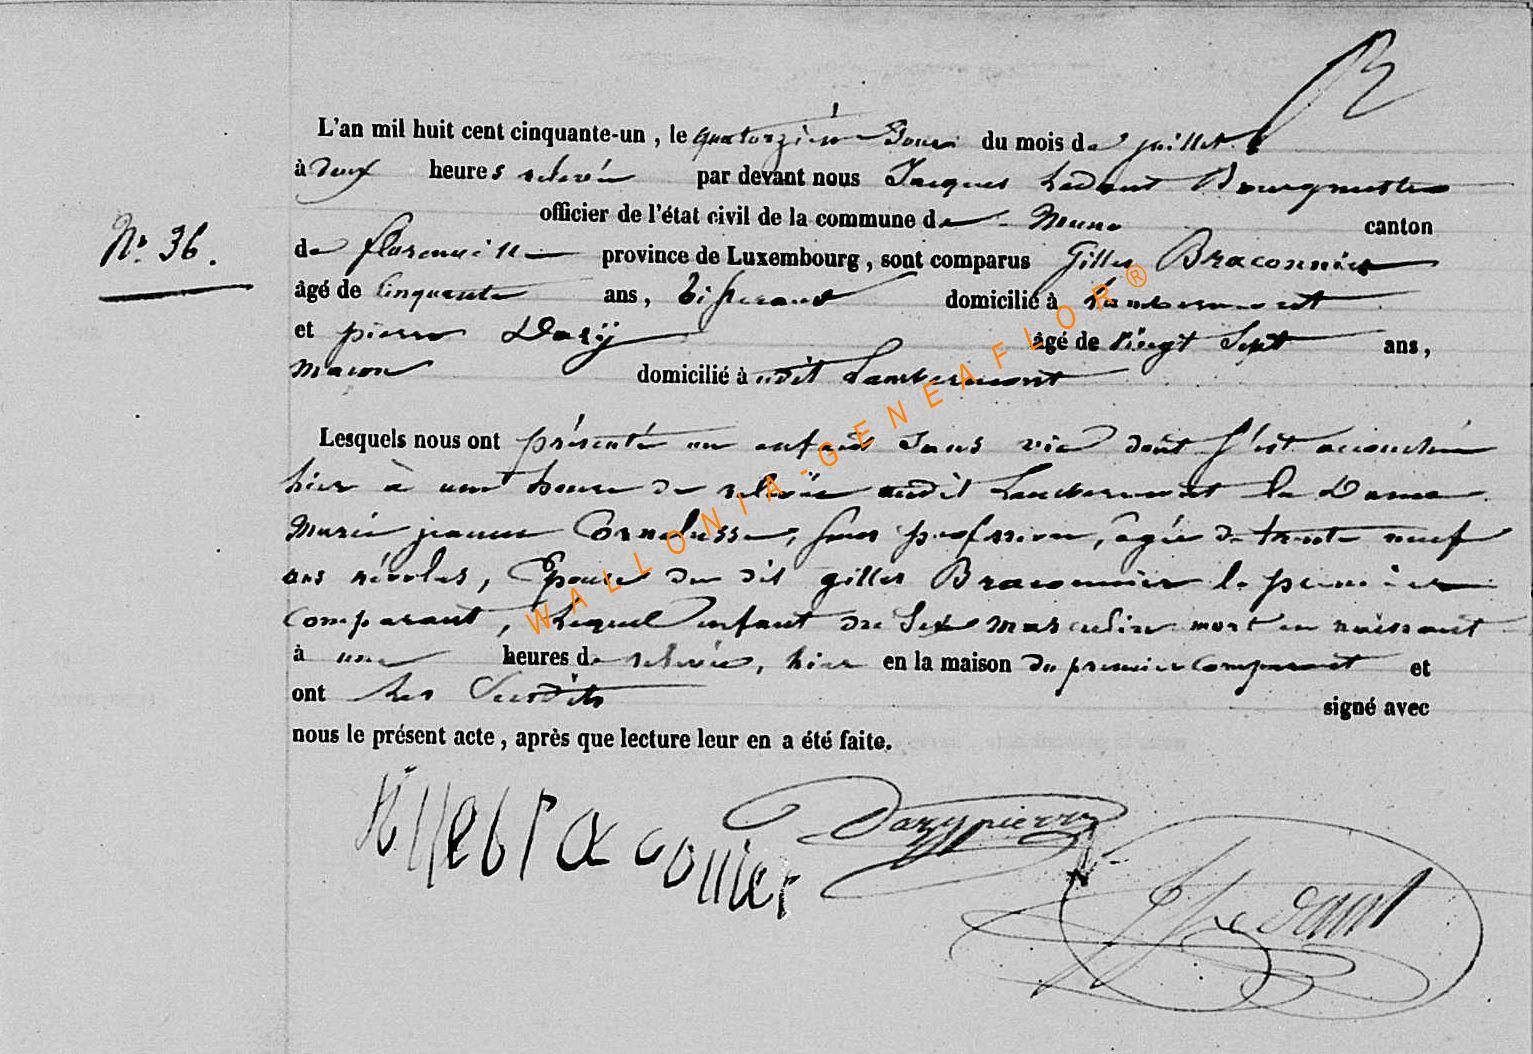 L'an mil huit cent cinquante-un, le quatorzième Jour du mois de juillet
à deux heures relevée par devant nous Jacques Ledant Bourgmestre
officier de l'état civil de la commune de Muno canton
N° 36.
de florenville province de Luxembourg, sont comparus Gilles Braconnier
âgé de Cinquante ans, Tisserand domicilié à Lambermont
et pierre Dazÿ âgé de Vingt Sept ans,
Macon domicilié à udit Lambermont
Lesquels nous ont présenté un enfant Sans vie dont S'est accouchée
hier à une heure de relevée audit Lambermont la Dame
Marie jeanne Cornelusse, Sans profession, agée de trente neuf
ans révolus, Epouse du dit gilles Braconnier le premier
comparant, Lequel enfant du Sexe masculin mort en naissant
à une heures de relevée, hier en la maison du premier Comparant et
ont Les Susdits signé avec
nous le présent acte, après que lecture leur en a été faite.
Gillebraconier
Dazy pierre
J Ledant
WALLONIA-GENEAFLOR®